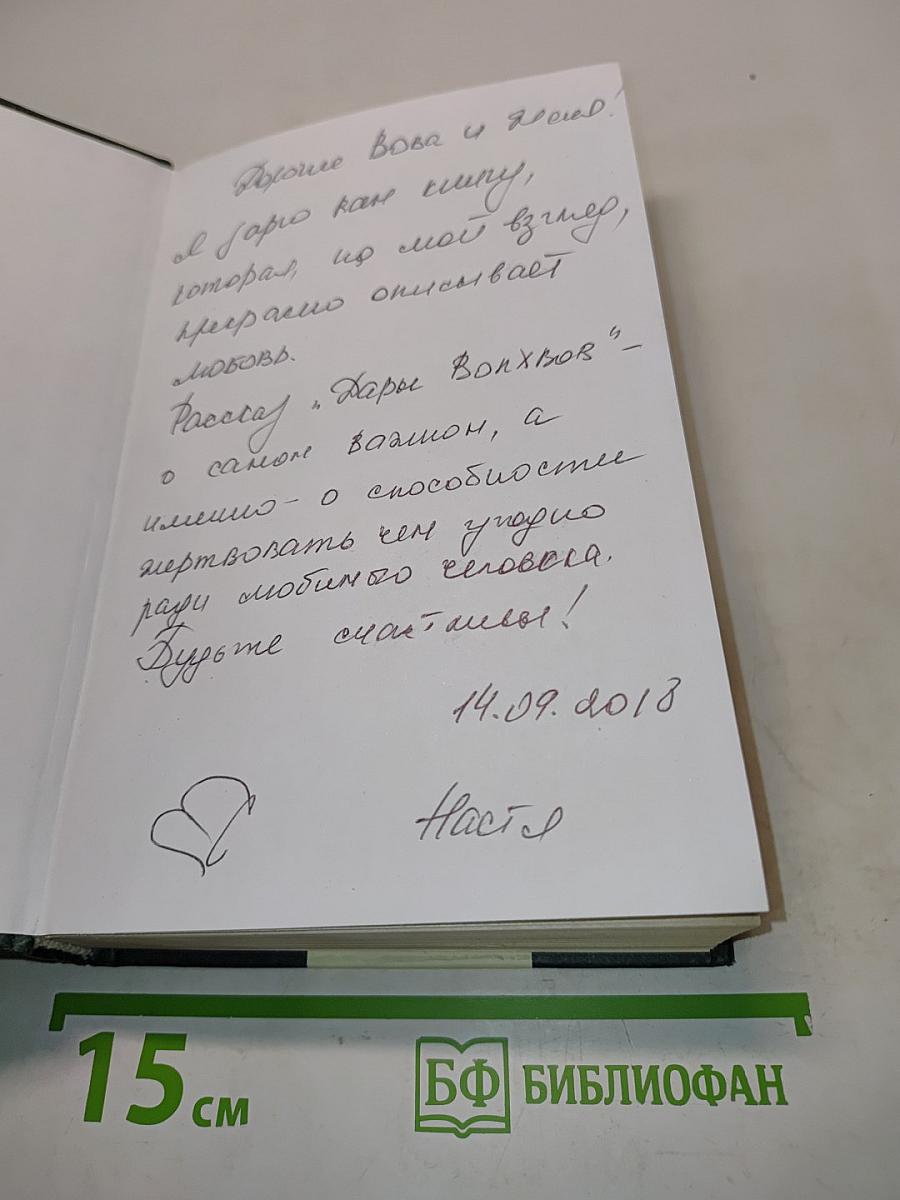 Дорогие Вова и Женя!
Я дарю вам книгу,
которая, на мой взгляд,
прекрасно описывает
любовь.
Рассказ „Дары Волхвов" –
о самом важном, а
именно – о способности
жертвовать чем угодно
ради любимого человека.
Будьте счастливы!
14.09.2018
Настя
15 см
БФ БИБЛИОФАН